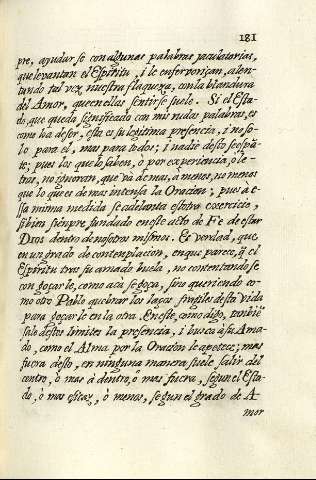 181
pre, ayudarse con algunas palabras jaculatorias,
que levantan el Espiritu, i le enfervoriçan, alen-
tando tal vez nuestra flaqueza, con la blandura
del Amor, que en ellas sentirse suele. Si el Esta-
do, que queda significado con mis rudas palabras, es
como ha de ser, esta es su legitima presencia, i no so-
lo para el, mas para todos; i nadie desto se espā-
te; pues los que lo saben, ò por experiencia, ò le-
tras, no ignoran, que và de mas, à menos, no menos
que lo que es de mas intensa la Oracion; pues a e-
ssa misma medida se adelanta estotro exercicio,
si bien siempre fundado en este acto de Fe de estar
Dios dentro de nosotros mismos. Es verdad, que
en un grado de contemplacion, en que parece, q̃ el
Espiritu tras su amado buela, no contentandose
con goçarle, como acà se goça, sino queriendo co-
mo otro Pablo quebrar los laços fragiles desta vida
para goçarle en la otra. En este, como digo, tambiē
sale destos limites la presencia, i busca à su Ama-
do, como el Alma por la Oracion le apetece; mas
fuera desto, en ninguna manera suele salir del
centro, ò mas à dentro, ò mas fuera, segun el Esta-
do, ò mas eficaz, ò menos, segun el grado de A-
mor